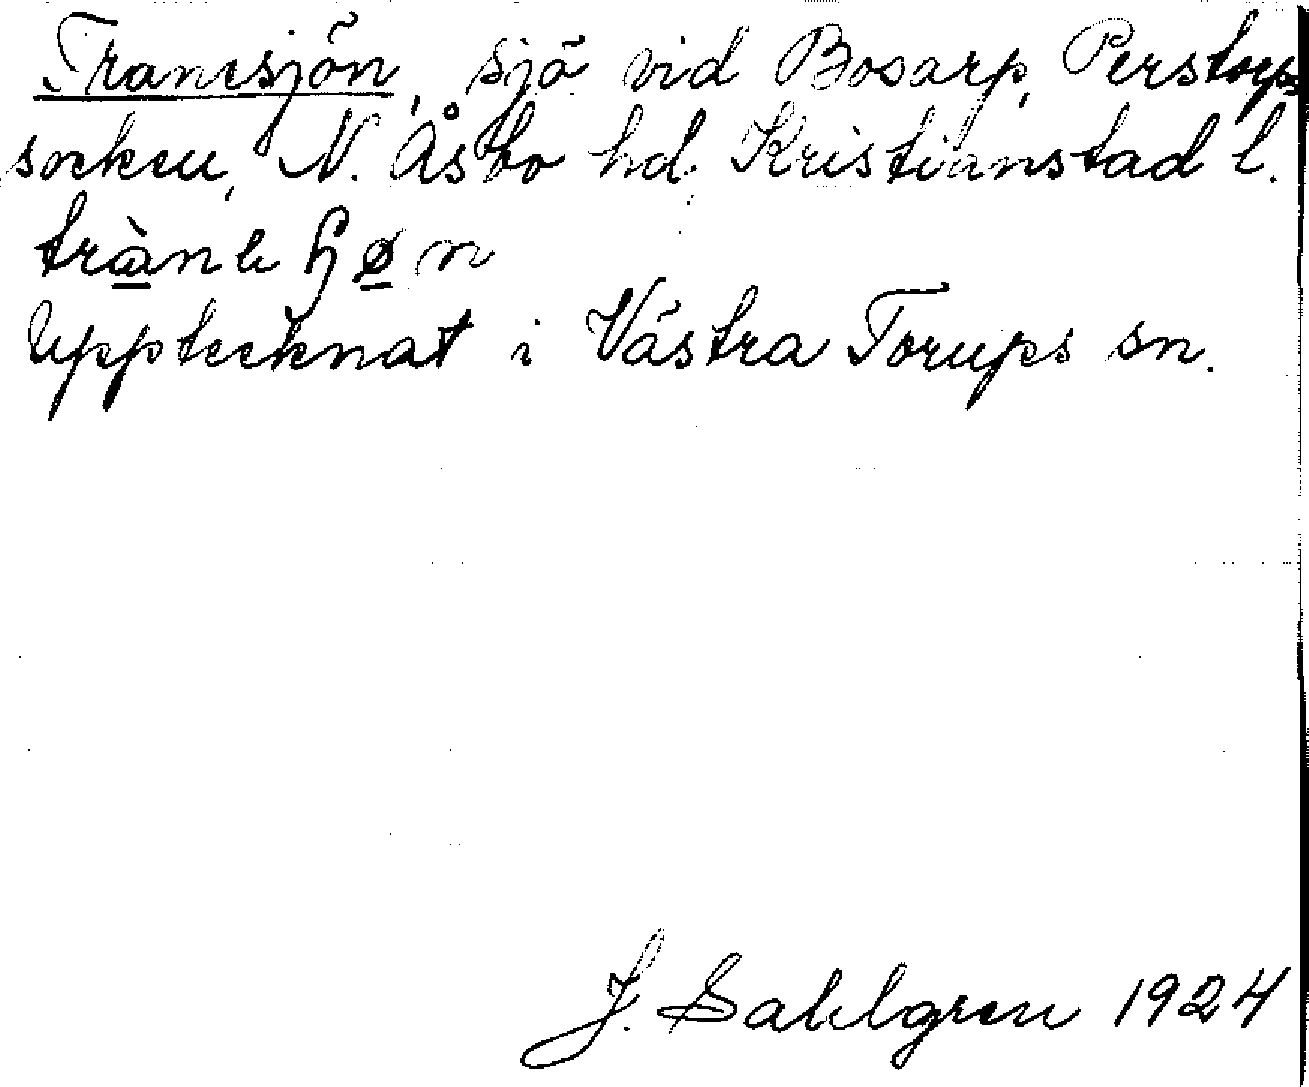 Tranesjön, sjö vid Bosarp, Perstorps
socken, N. Åsbo hd. Kristianstad l.
Upptecknat i Västra Torups sn.
J. Sahlgren 1924